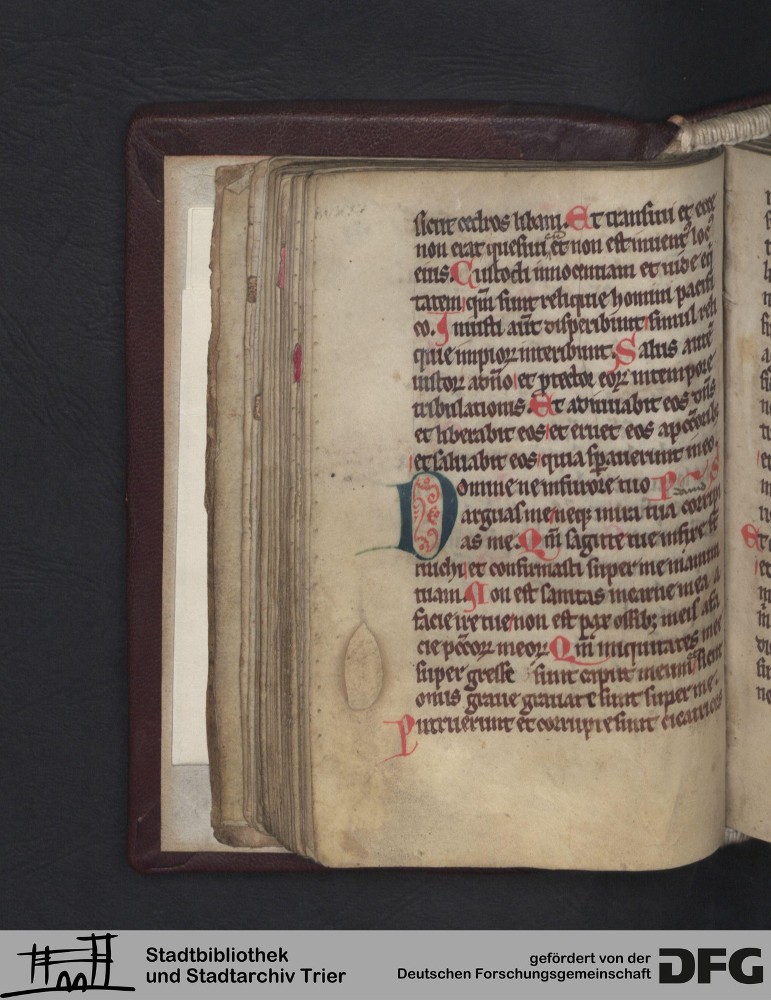 sicut cedros libani. Et transiui et ecce
non erat quesiui eū et non est inuent' loc'
eius. Custodi innocentiam et uide eq̄
tatem qm̄ sunt reliquie homini pacifi
co. Iniusti aūt disperibunt simul reli
quie impioꝝ interibunt. Salus autē
iustoꝝ a dn̄o et ꝓtector eoꝝ in tempore
tribulationis. Et adiuuabit eos dn̄s
et liberabit eos et eruet eos a pccōribꝫ
et saluabit eos quia sꝑauerunt in eo.
Domine ne in furore tuo
arguas me neqꝫ in ira tua corripi
as me. Qm̄ sagitte tue infixe st̄
michi et confirmasti super me manum
tuam. Non est sanitas in carne mea a
facie ire tue non est pax ossibꝫ meis a fa
cie pccōꝝ meoꝝ Qm̄ iniquitates mee
super gresse sunt caput meum sicut
onus graue grauate sunt super me.
Putruerunt et corrupte sunt cicatrices
Stadtbibliothek
und Stadtarchiv Trier
gefördert von der
Deutschen Forschungsgemeinschaft
DFG